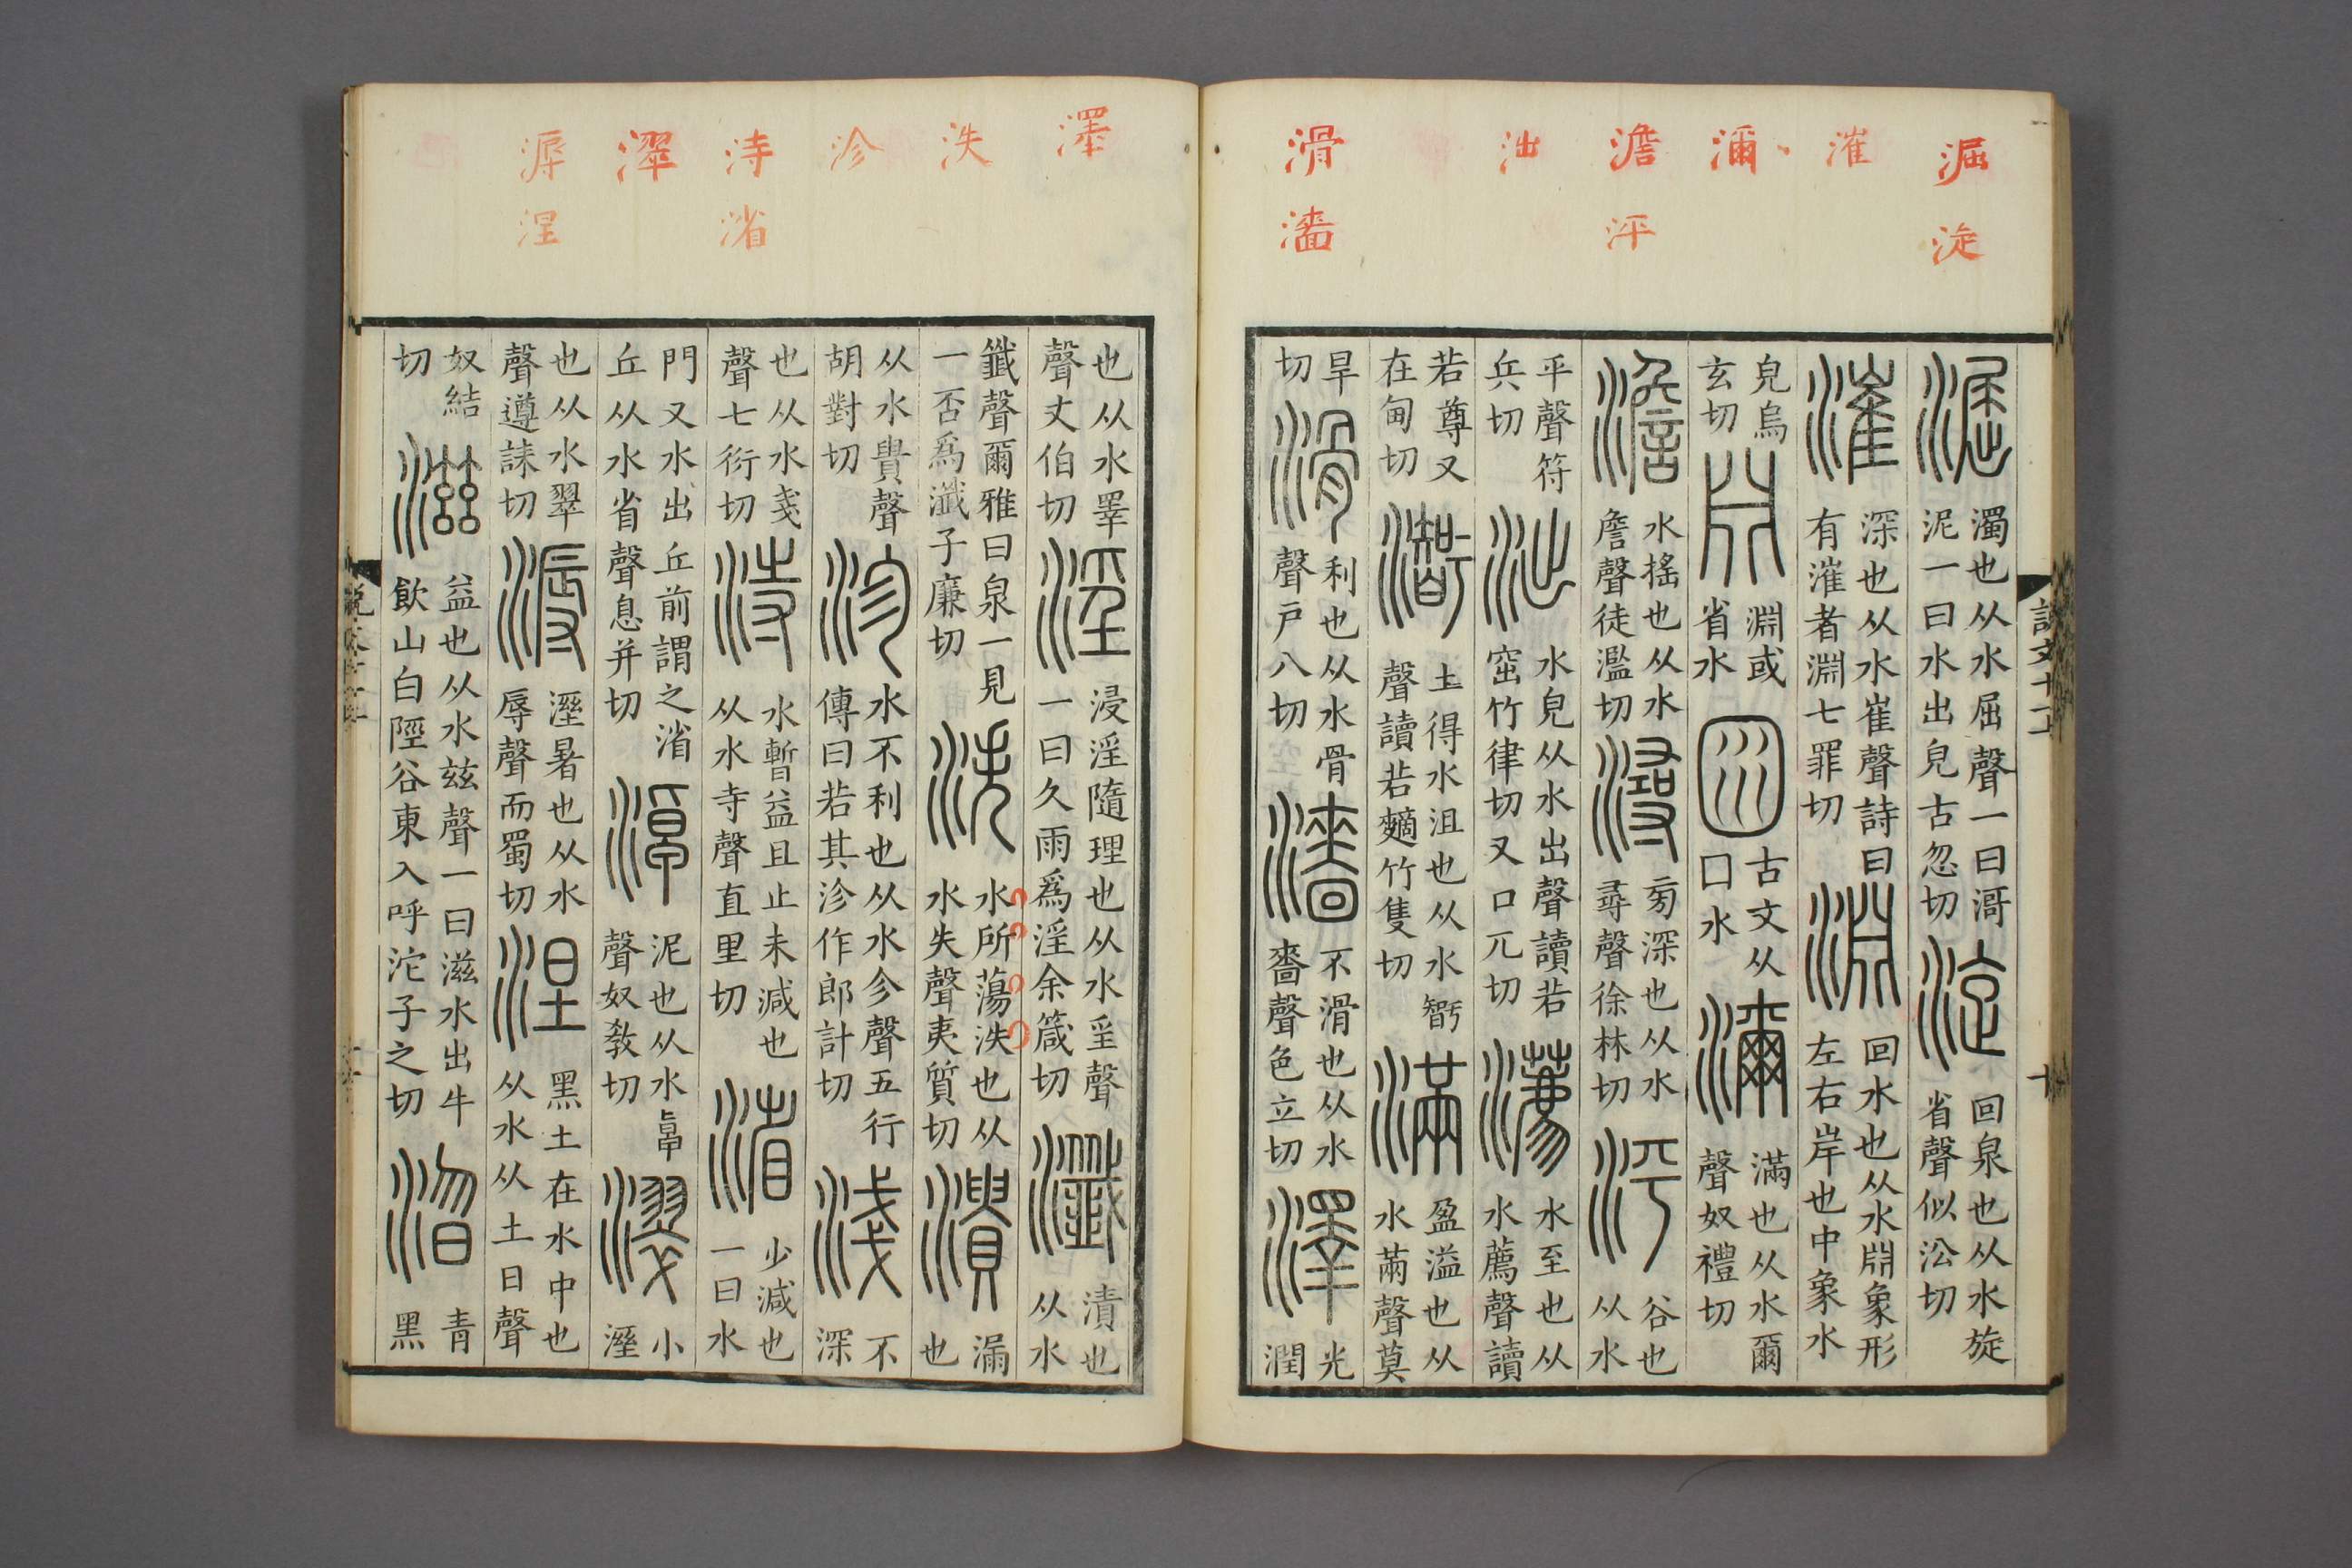 淈 漼 濔 澹 泏 滑
淀 泙 濇
淈濁也从水屈聲一曰滒泥一曰水出皃古忽切淀回泉也从水旋省聲似沿切
漼深也从水崔聲詩曰有漼者淵七罪切淵回水也从水𣶒象形左右岸也中象水
皃烏玄切𣶒淵或省水囦古文从口水濔滿也从水爾聲奴禮切
澹水搖也从水詹聲徒濫切潯㫄深也从水尋聲徐林切泙谷也从水
平聲符兵切泏水皃从水出聲讀若窋竹律切又口兀切瀳水至也从水薦聲讀
若尊又在甸切土得水沮也从水聲讀若竹隻切滿盈溢也从水㒼聲莫
旱切滑利也从水骨聲戶八切濇不滑也从水嗇聲色立切澤光潤
說文十一上
十
澤 泆 沴 洔 濢 溽
渻 涅
也从水睪聲丈伯切淫浸淫隨理也从水㸒聲一曰久雨爲淫余箴切瀸漬也从水
韱聲爾雅曰泉一見一否爲瀸子廉切泆水所蕩泆也从水失聲夷質切潰漏也
从水貴聲胡對切沴水不利也从水㐱聲五行傳曰若其沴作郎計切淺不深
也从水戔聲七衍切洔水暫益且止未減也从水寺聲直里切渻少減也一曰水
門又水出丘前謂之渻丘从水省聲息并切淖泥也从水卓聲奴敎切濢小溼
也从水翠聲遵誄切溽溼暑也从水辱聲而蜀切涅黑土在水中也从水从土日聲
奴結切滋益也从水兹聲一曰滋水出牛飲山白陘谷東入呼沱子之切㳷青黑